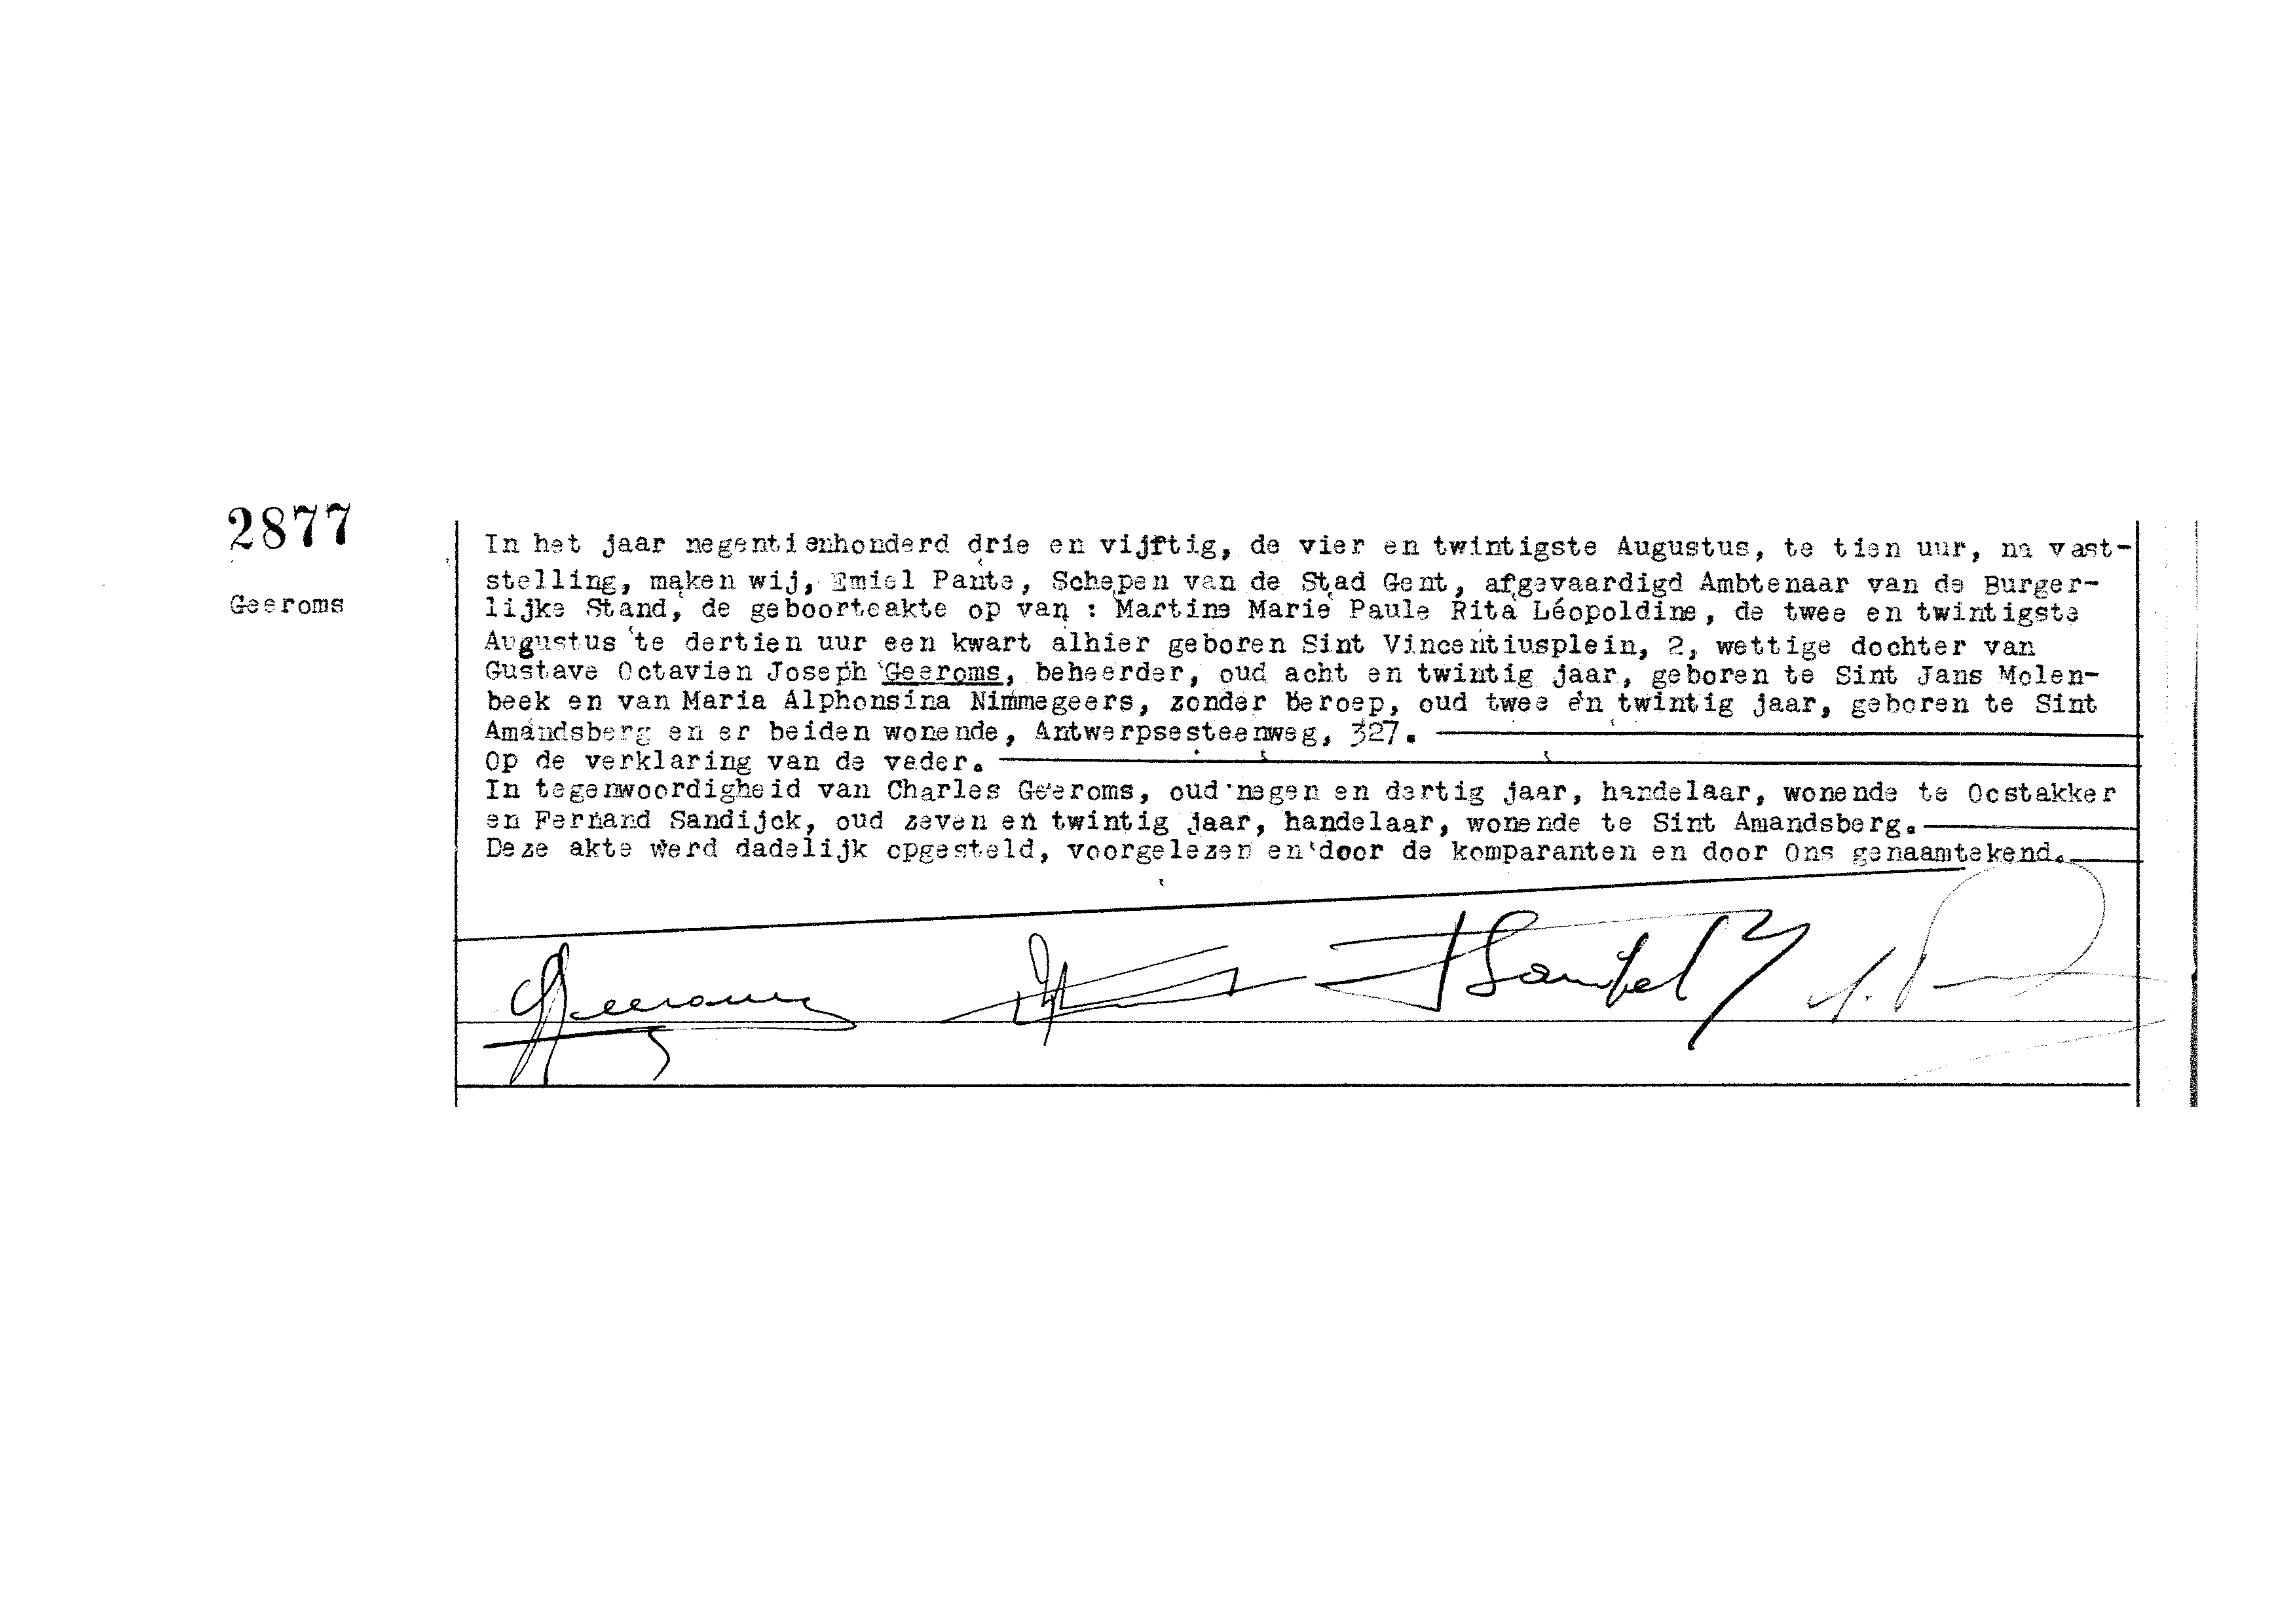 2877
Geeroms
In het jaar negentienhonderd drie en vijftig, de vier en twintigste Augustus, te tien uur, na vast-
stelling, maken wij, Emiel Pante, Schepen van de Stad Gent, afgevaardigd Ambtenaar van de Burger-
lijke Stand, de geboorteakte op van : Martine Marie Paule Rita Léopoldine, de twee en twintigste
Augustus te dertien uur een kwart alhier geboren Sint Vincentiusplein, 2, wettige dochter van
Gustave Octavien Joseph Geeroms, beheerder, oud acht en twintig jaar, geboren te Sint Jans Molen-
beek en van Maria Alphonsina Nimmegeers, zonder beroep, oud twee en twintig jaar, geboren te Sint
Amandsberg en er beiden wonende, Antwerpsesteenweg, 327.
Op de verklaring van de vader.
In tegenwoordigheid van Charles Geeroms, oud negen en dertig jaar, handelaar, wonende te Oostakker
en Fernand Sandijck, oud zeven en twintig jaar, handelaar, wonende te Sint Amandsberg.
Deze akte werd dadelijk opgesteld, voorgelezen en door de komparanten en door Ons genaamtekend.
Geeroms